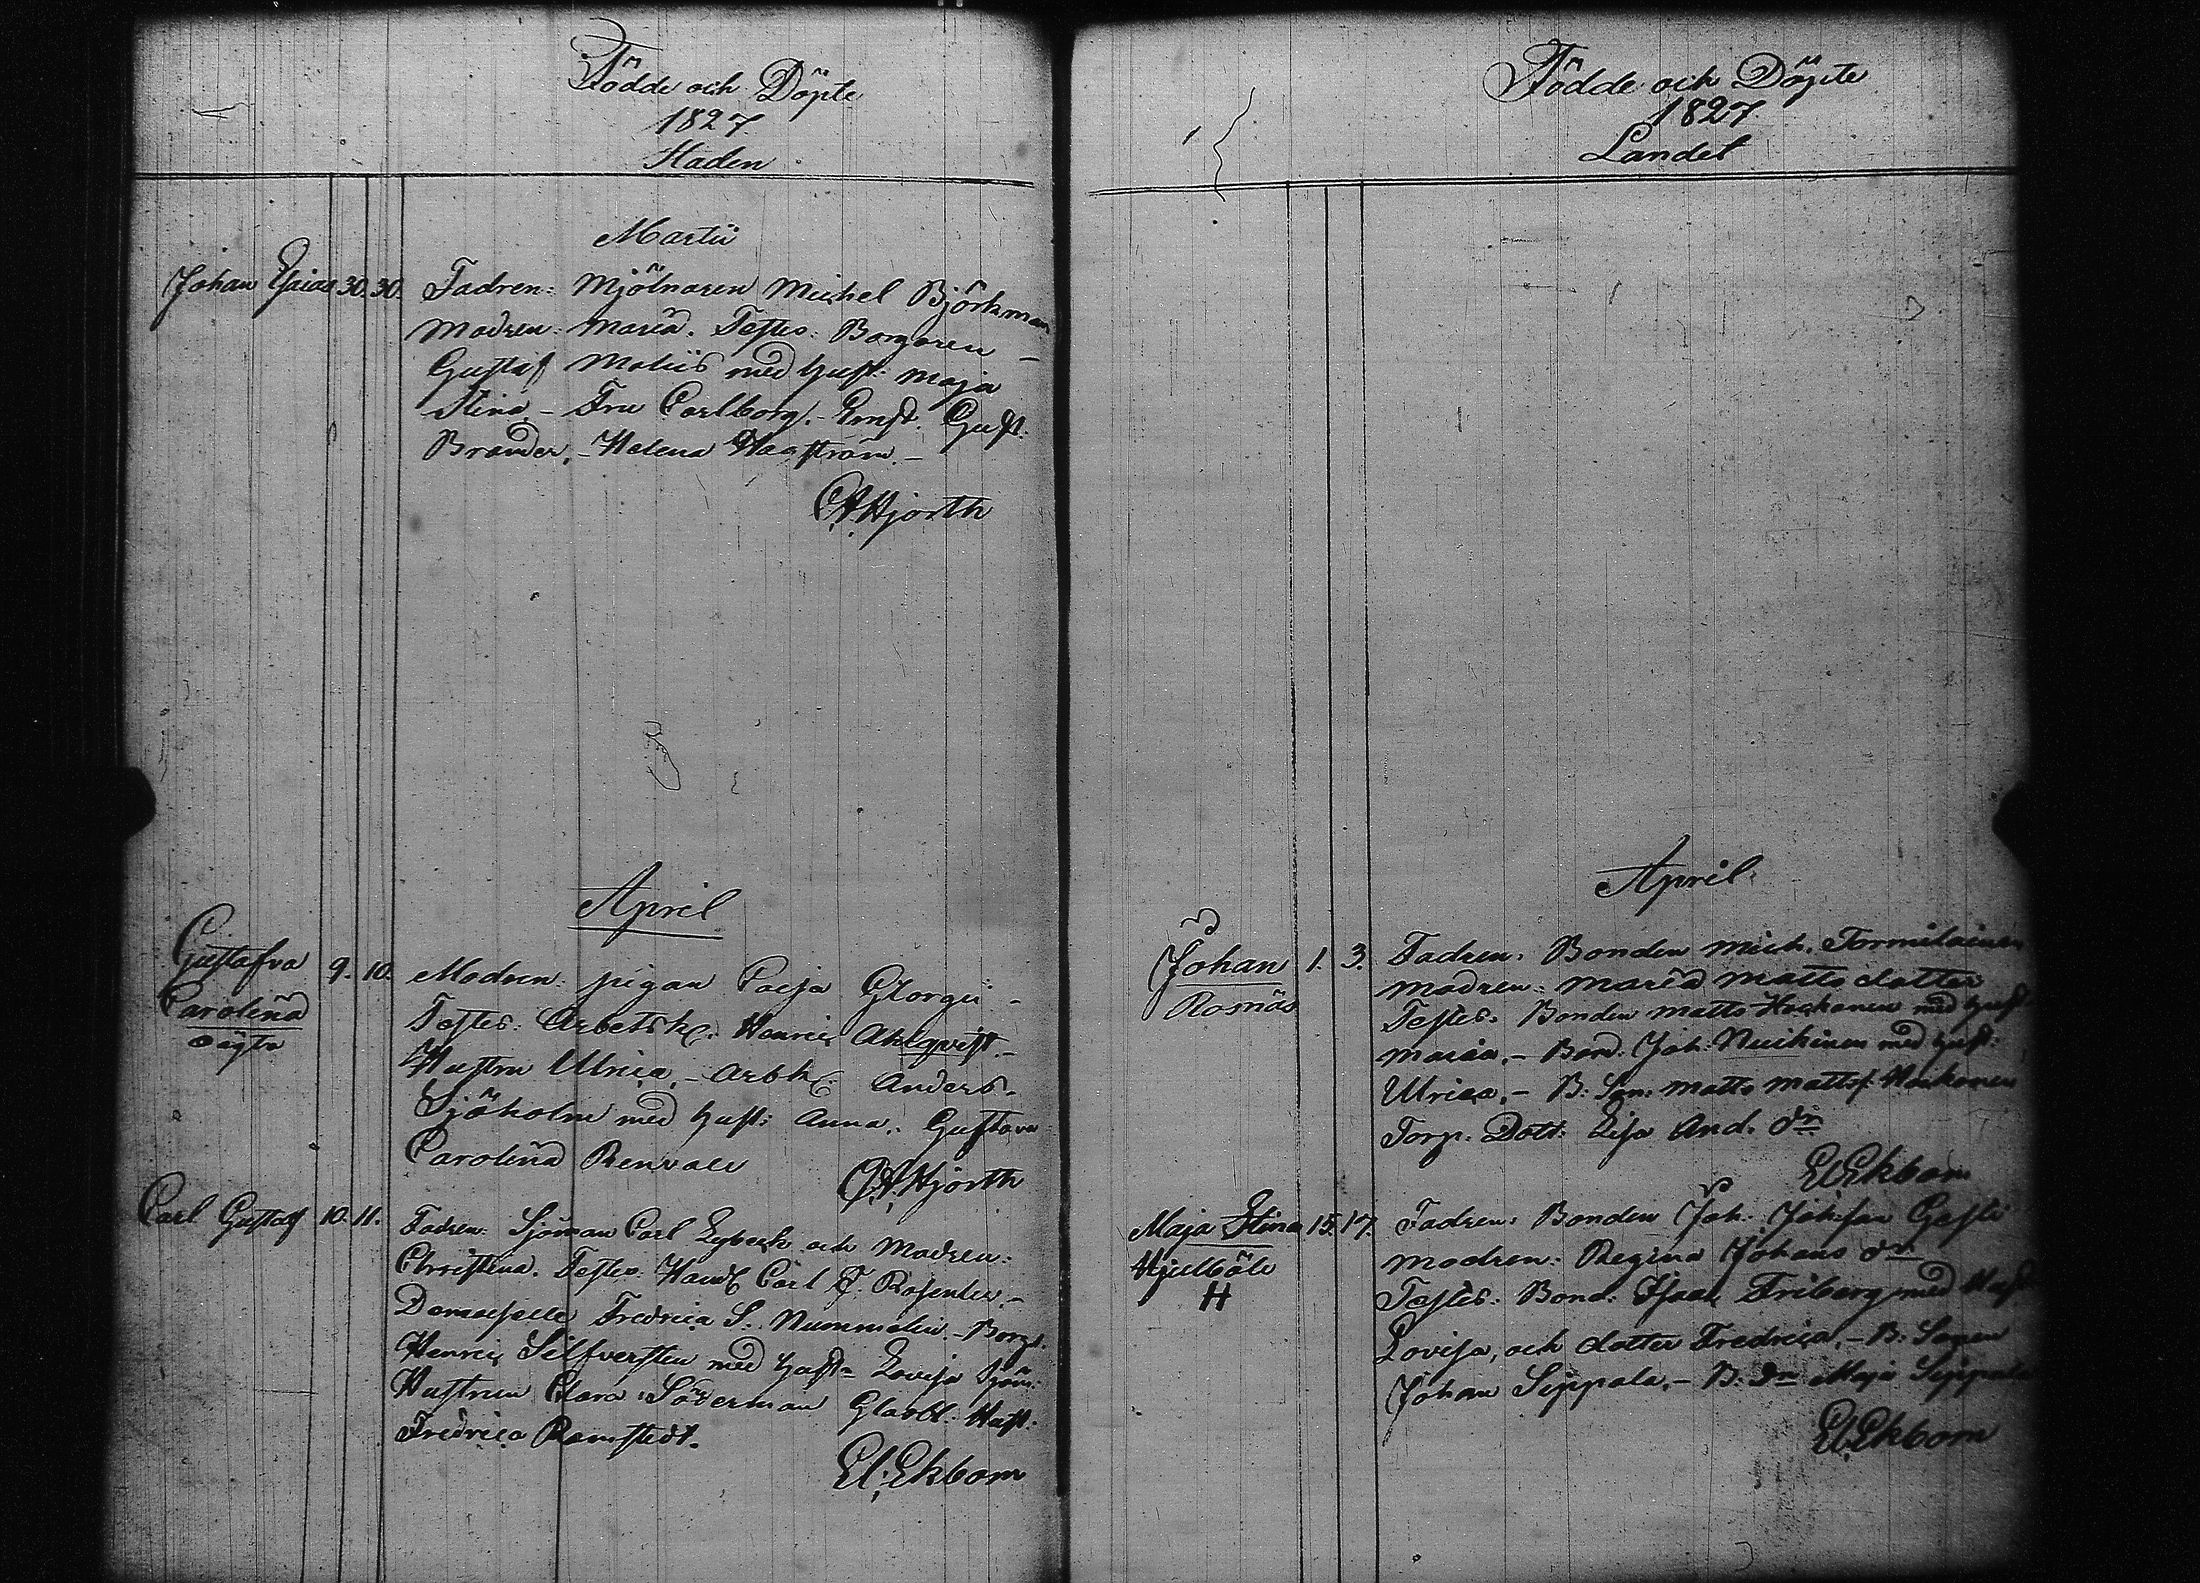 Födde och Döpte
1827.
Staden
Martii
Johan Esaias 30. 30. Fadren: Mjölnaren Michel Björkman
Modren: Maria. Testes: Borgaren –
Gustaf Moliis med hust: Maja
Stina. – Fru Carlborg. – Ernst. Gust:
Brander. – Helena Hagström. –
Hjorth
April
Gustafva
Carolina
oägta
9. 10. Modren: pigan Caisa Glorgii –
Testes: Arbetsk. Henric Ahlqvist. –
Hustru Ulrica. – Arbk. Anders.
Sjöholm med hust: Anna. Gustava
Carolina Renvall
Hjorth
Carl Gustaf 10. 11. Fadren: Sjöman Carl Lybeck och Modren:
Christina. Testes: Handl Carl F. Rosenlew. –
Demoiselle Fredrica S. Nummelin – Borg.
Henric Silfversten med hust– Lovisa Sjöm:
Hustrun Clara Söderman Glasbl. Hust.
Fredrica Ramstedt.
El. Ekbom
Födde och Döpte
1827.
Landet
April
Johan
Rosnäs
1. 3. Fadren: Bonden Mich. Tormilainen
Modren: Maria Matts dotter
Testes: Bonden Matts Hockonen med hust
Maria. – Bond. Joh: med hust:
Ulrica. – B: Son: Matts Mattss: Hockonen
Torp. Dott: Lisa And. dr
El. Ekbom
Maja Stina
Hjulböle
H
15. 17. Fadren: Bonden Joh: Johsson Gesti
Modren: Regina Johans dr
Testes: Bond: Isaac Friberg med Hust
Lovisa, och dotter Fredrica. – B: Sonen
Johan Seppala. – B: dr Maja Seppala
El. Ekbom